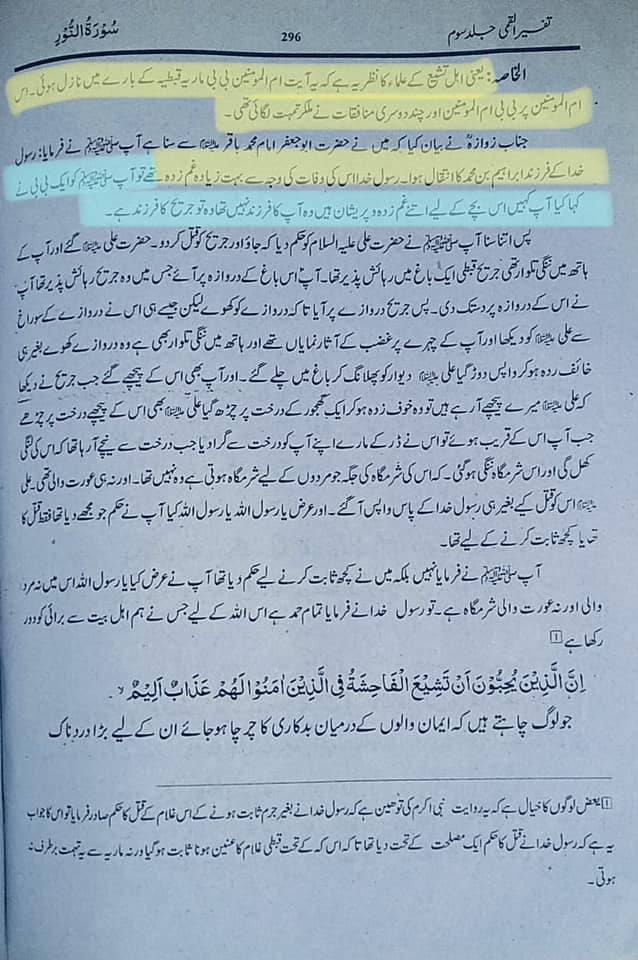 تفسیر القمی جلد سوم
296
سُوْرَةُ النُّوْرِ
الخاصہ: یعنی اہل تشیع کے علماء کا نظریہ ہے کہ یہ آیت ام المومنین بی بی ماریہ قبطیہ کے بارے میں نازل ہوئی۔ اس
ام المومنین پر بی بی ام المومنین اور چند دوسری منافقات نے ملکر تہمت لگائی تھی۔
جناب زوارہؓ نے بیان کیا کہ میں نے حضرت ابوجعفر امام محمد باقر علیہ السلام سے سنا ہے آپ ﷺ نے فرمایا: رسول
خدا کے فرزند ابراہیم بن محمد کا انتقال ہوا۔ رسول خدا اس کی وفات کی وجہ سے بہت زیادہ غم زدہ تھے تو آپ ﷺ کو ایک بی بی نے
کہا کیا آپ کہیں اس بچے کے لیے اتنے غم زدہ و پریشان ہیں وہ آپ کا فرزند نہیں تھا وہ تو جریح کا فرزند ہے۔
پس اتنا سنا آپ ﷺ نے حضرت علی علیہ السلام کو حکم دیا کہ جاؤ اور جریح کو قتل کر دو۔ حضرت علی علیہ السلام گئے اور آپ کے
ہاتھ میں ننگی تلوار تھی جریح قبطی ایک باغ میں رہائش پذیر تھا۔ آپؑ اس باغ کے دروازہ پر آئے جس میں وہ جریح رہائش پذیر تھا آپ
نے اس کے دروازہ پر دستک دی۔ پس جریح دروازے پر آیا تا کہ دروازے کو کھولے لیکن جیسے ہی اس نے دروازے کے سوراخ
سے علی علیہ السلام کو دیکھا اور آپ کے چہرے پر غضب کے آثار نمایاں تھے اور ہاتھ میں ننگی تلوار بھی ہے وہ دروازے کھولے بغیر ہی
خائف ردہ ہو کر واپس دوڑ گیا علی علیہ السلام دیوار کو پھلانگ کر باغ میں چلے گئے۔ اور آپ بھی اس کے پیچھے گئے جب جریح نے دیکھا
کہ علی علیہ السلام میرے پیچھے آ رہے ہیں تو وہ خوف زدہ ہو کر ایک کھجور کے درخت پر چڑھ گیا علی علیہ السلام بھی اس کے پیچھے درخت پر چڑھے
جب آپ اس کے قریب ہوئے تو اس نے ڈر کے مارے اپنے آپ کو درخت سے گرا دیا جب درخت سے نیچے آ رہا تھا کہ اس کی لنگی
کھل گی اور اس شرمگاہ ننگی ہوگئی۔ کہ اس کی شرمگاہ کی جگہ جو مردوں کے لیے شرمگاہ ہوتی ہے وہ نہیں تھا۔ اور نہ ہی عورت والی تھی۔ علی
علیہ السلام اس کو قتل کیے بغیر ہی رسول خدا کے پاس واپس آ گئے۔ اور عرض یا رسول اللہ یا رسول اللہ کیا آپ نے حکم جو مجھے دیا تھا فقط قتل کا
تھا یا کچھ ثابت کرنے کے لیے تھا۔
آپ ﷺ نے فرمایا نہیں بلکہ میں نے کچھ ثابت کرنے لیے حکم دیا تھا آپ نے عرض کیا یا رسول اللہ اس میں نہ مرد
والی اور نہ عورت والی شرمگاہ ہے۔ تو رسول خدا نے فرمایا تمام حمد ہے اس اللہ کے لیے جس نے ہم اہل بیت سے برائی کو دور
رکھا ہے [1]
اِنَّ الَّذِيْنَ يُحِبُّوْنَ اَنْ تَشِيْعَ الْفَاحِشَةُ فِي الَّذِيْنَ اٰمَنُوْا لَهُمْ عَذَابٌ اَلِيْمٌ ۙ
جو لوگ چاہتے ہیں کہ ایمان والوں کے درمیان بدکاری کا چرچا ہو جائے ان کے لیے بڑا دردناک
[1] بعض لوگوں کا خیال ہے کہ یہ روایت نبی اکرم کی توھین ہے کہ رسول خدا نے بغیر جرم ثابت ہونے کے اس غلام کے قتل کا حکم صادر فرمایا تو اس کا جواب
یہ ہے کہ رسول خدا نے قتل کا حکم ایک مصلحت کے تحت دیا تھا تا کہ اس کہ کے تحت قبطی غلام کا عنین ہونا ثابت ہو گیا ورنہ ماریہ سے یہ تہمت برطرف نہ
ہوتی۔